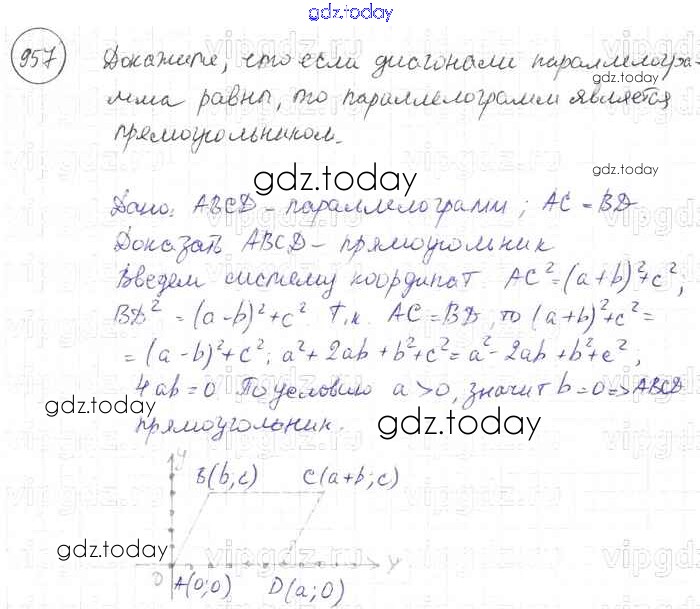 gdz.today
957 Докажите, что если диагонали параллелогра-
мма равны, то параллелограмм является
прямоугольником.
gdz.today
gdz.today
gdz.today
gdz.today
Дано: ABCD - параллелограмм; AC = BD
Доказать ABCD - прямоугольник
Введем систему координат. AC² = (a+b)² + c²,
BD² = (a-b)² + c². Т.к. AC = BD, то (a+b)² + c² =
= (a-b)² + c²; a² + 2ab + b² + c² = a² - 2ab + b² + c²;
4ab = 0 По условию a > 0, значит b = 0 => ABCD
прямоугольник.
gdz.today
gdz.today
y
B(b; c) C(a+b; c)
gdz.today
gdz.today
O A(0; 0) D(a; 0)